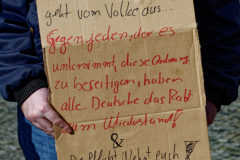 geht vom Volke aus...
Gegen jeden, der es
unternimmt diese Ordnung
zu beseitigen, haben
alle Deutsche das Recht
zum Wiederstand!
&